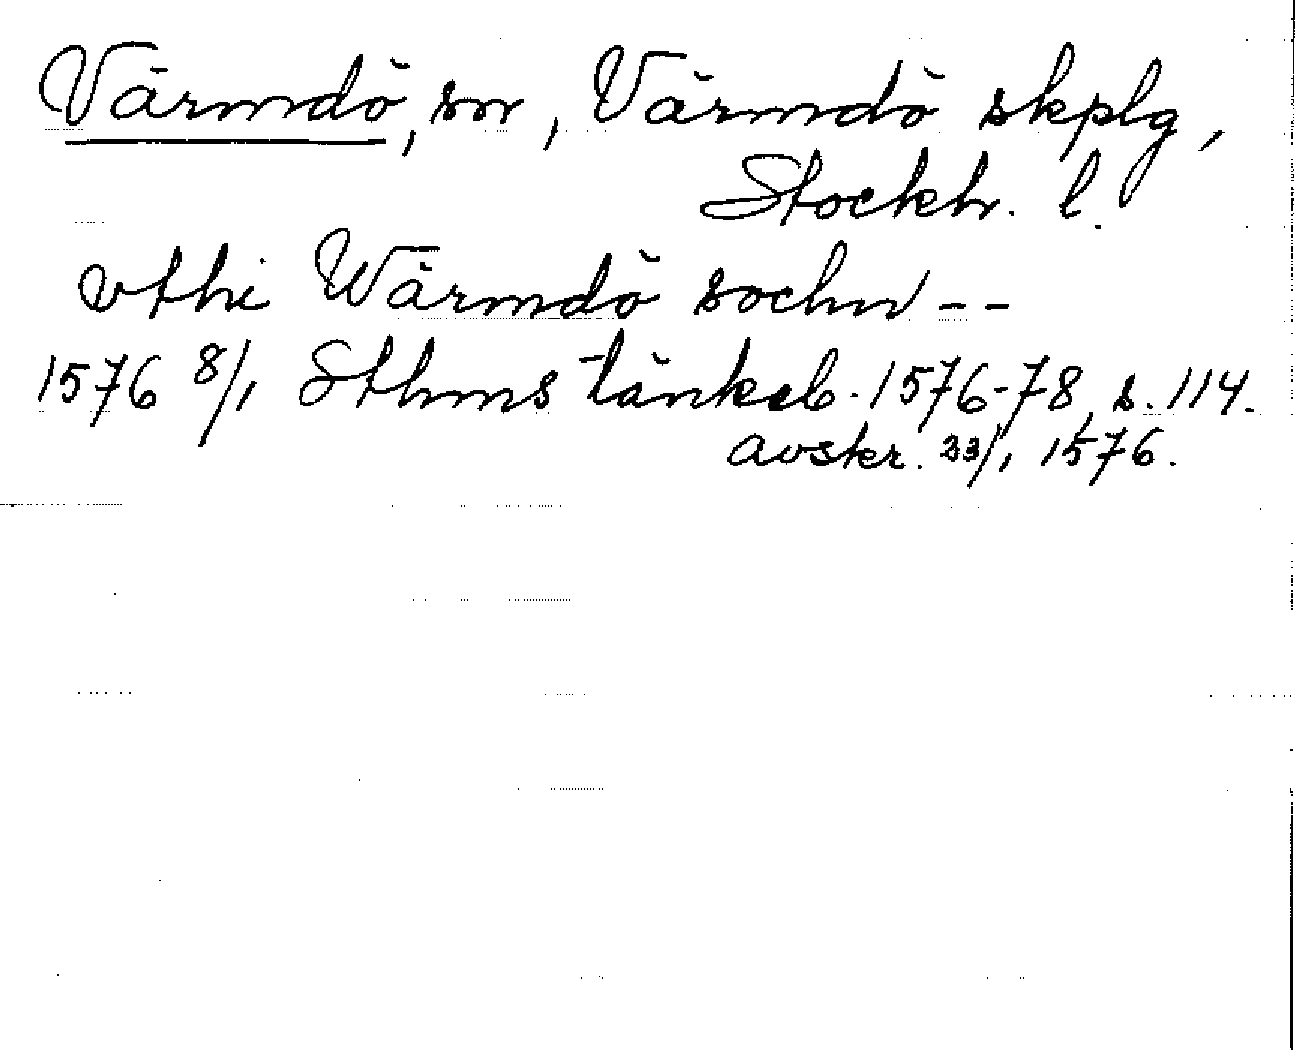 Värmdö, sn, Värmdö skplg,
Stockh. l.
vthi Wärmdö sochn --
1576 8/1 Sthms tänkeb. 1576-78, s. 114.
avskr. 23/1 1576.